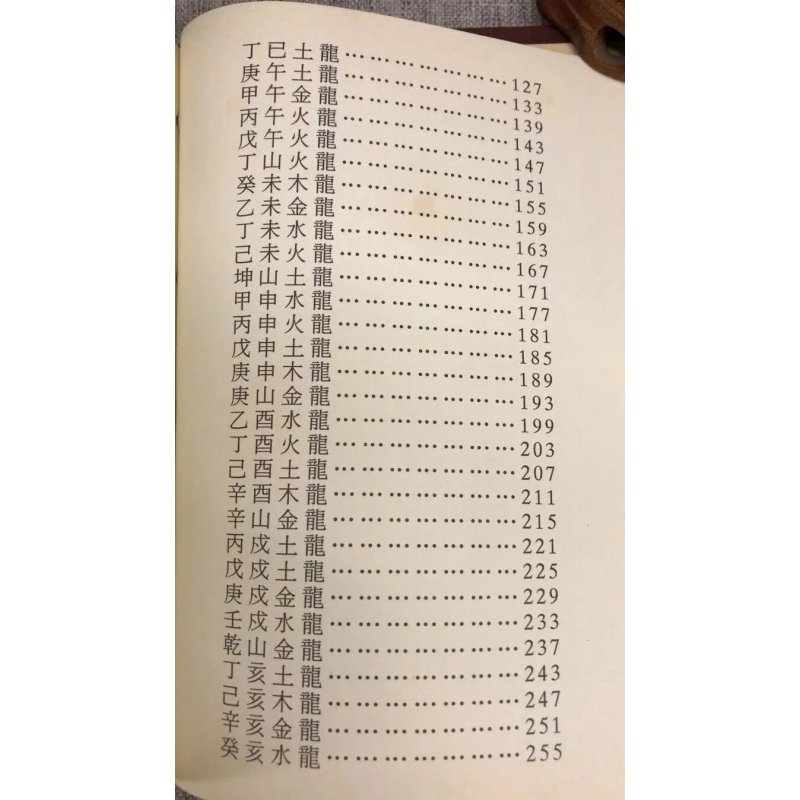 丁巳土龍…………………127
庚午土龍…………………133
甲午金龍…………………139
丙午火龍…………………143
戊午火龍…………………147
丁山火龍…………………151
癸未木龍…………………155
乙未金龍…………………159
丁未水龍…………………163
己未火龍…………………167
坤山土龍…………………171
甲申水龍…………………177
丙申火龍…………………181
戊申土龍…………………185
庚申木龍…………………189
庚山金龍…………………193
乙酉水龍…………………199
丁酉火龍…………………203
己酉土龍…………………207
辛酉木龍…………………211
辛山金龍…………………215
丙戍土龍…………………221
戊戍土龍…………………225
庚戍金龍…………………229
壬戍水龍…………………233
乾山金龍…………………237
丁亥土龍…………………243
己亥木龍…………………247
辛亥金龍…………………251
癸亥水龍…………………255